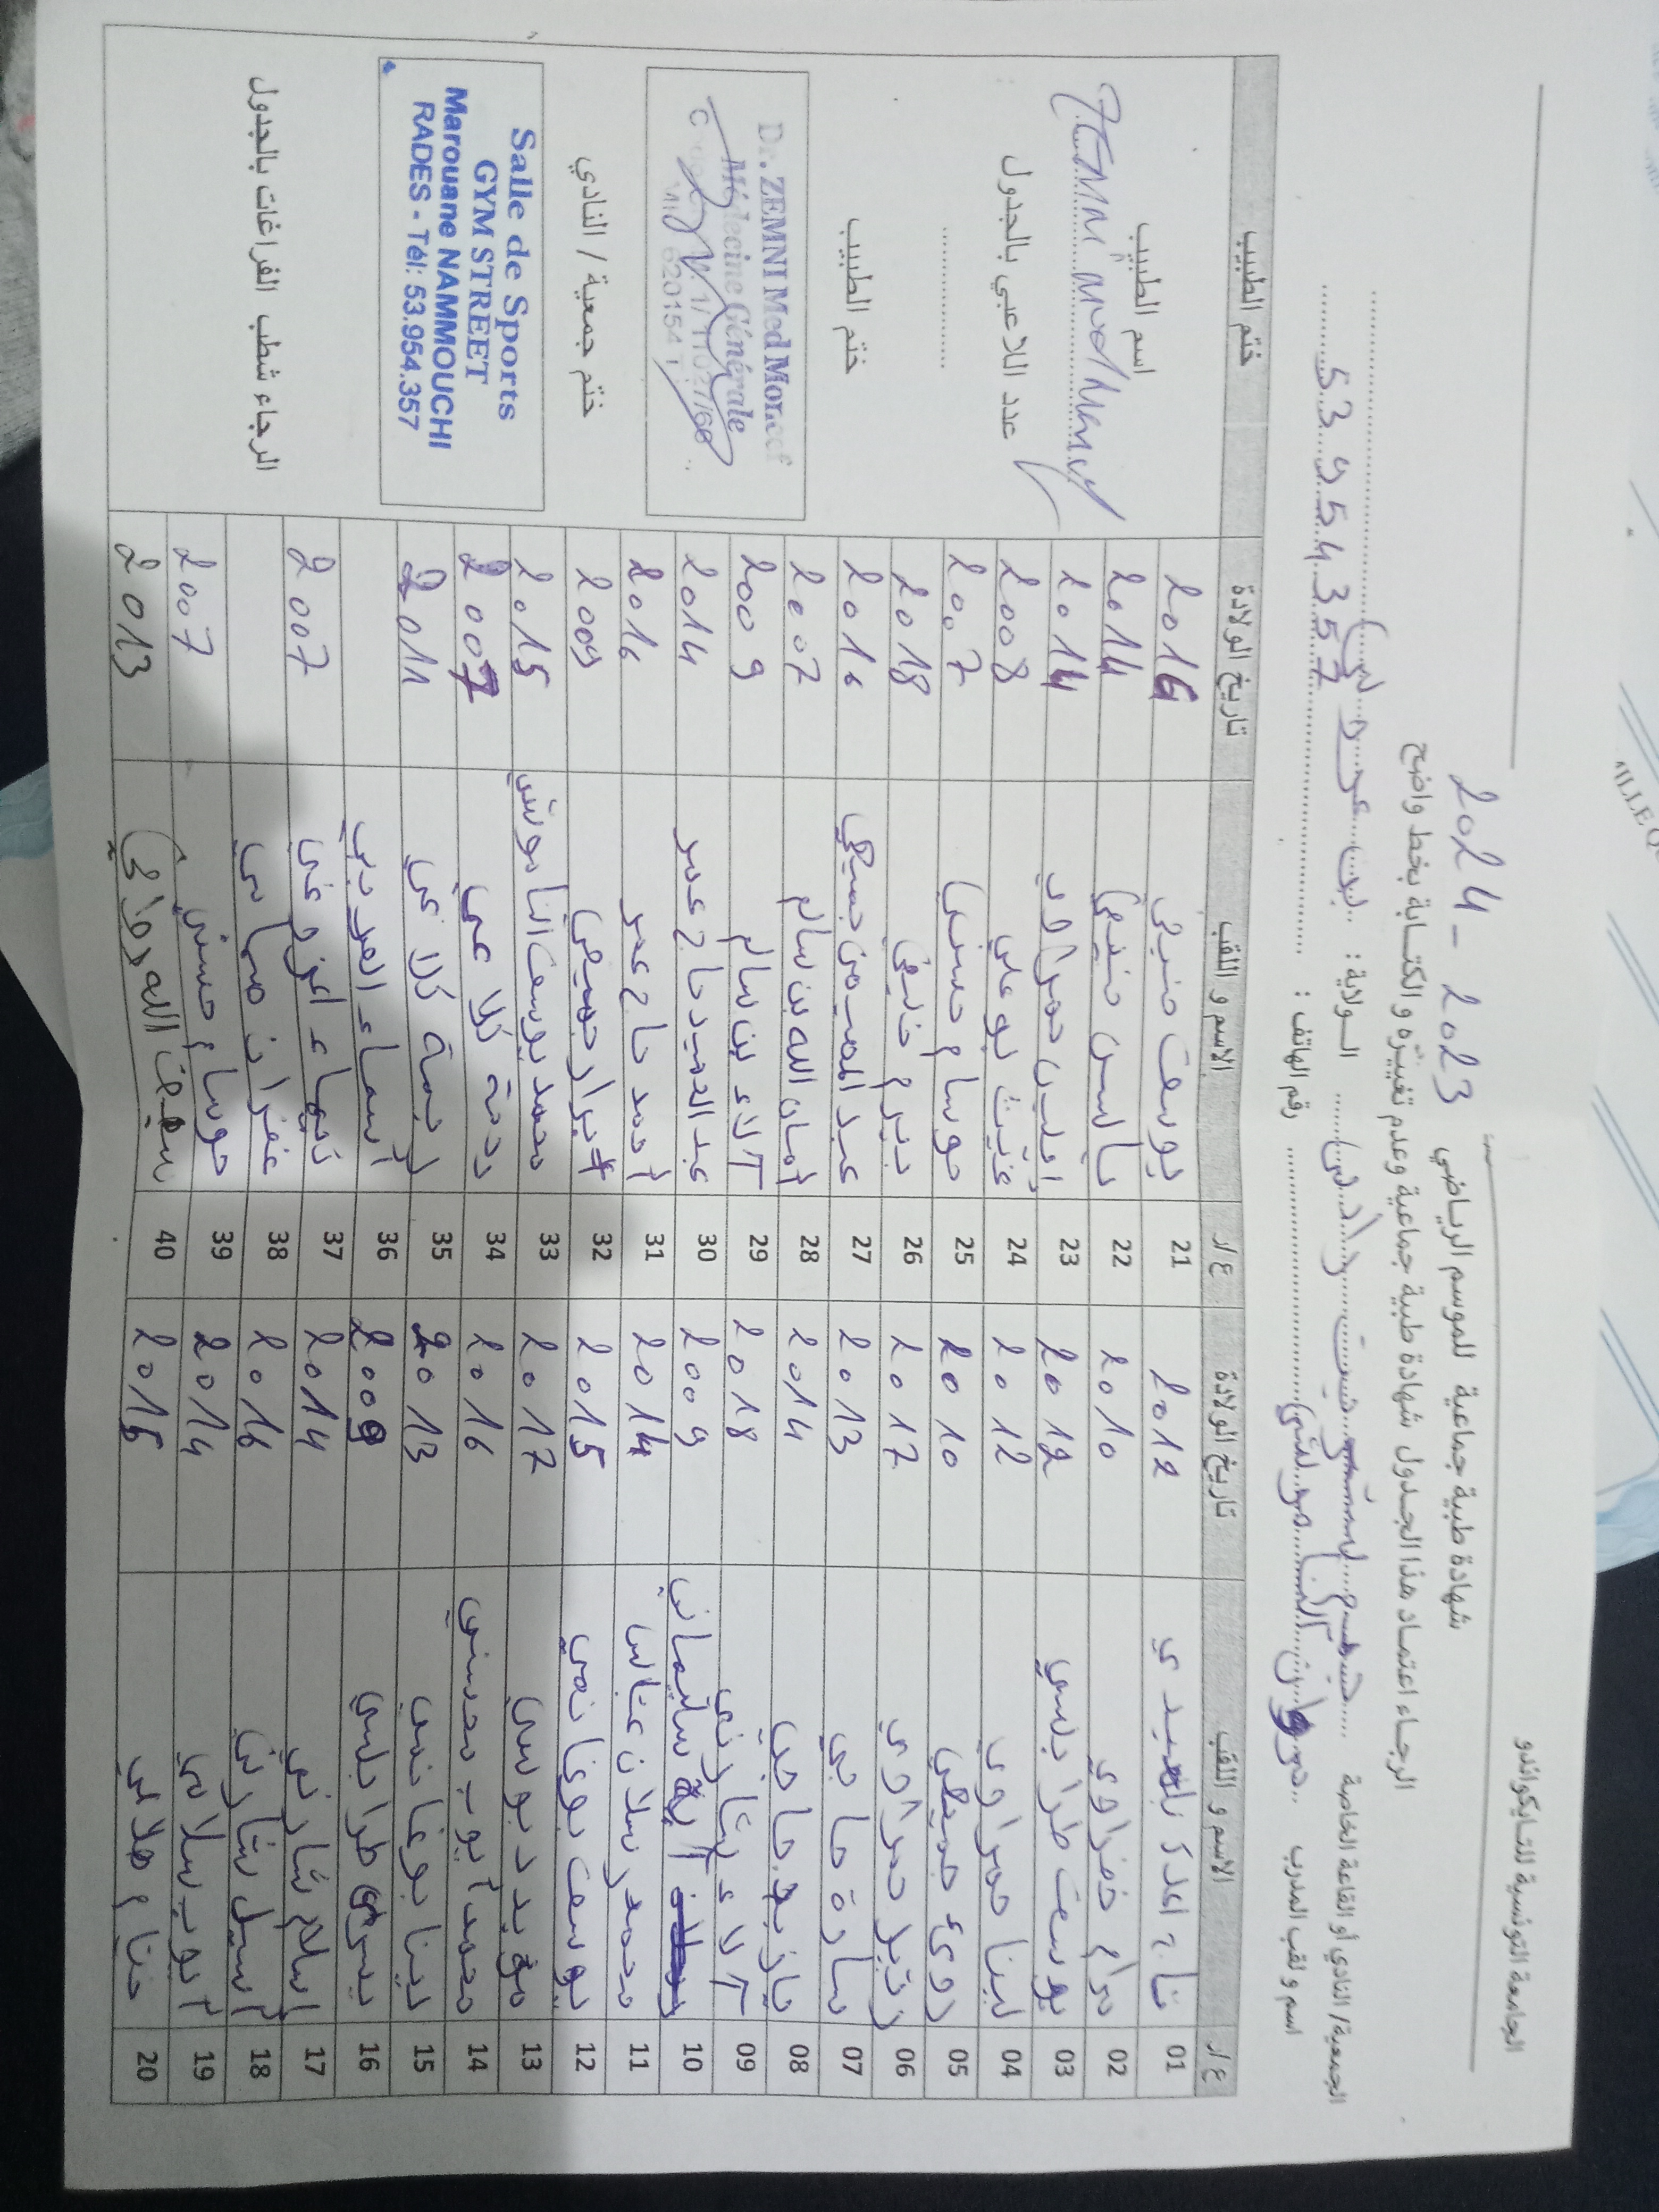 الجامعة التونسية للتايكواندو
شهادة طبية جماعية للموسم الرياضي 2023 - 2024
الرجاء اعتماد هذا الجدول شهادة طبية جماعية وعدم تغييره والكتابة بخط واضح
الجمعية/ النادي أو القاعة الخاصة الولاية : بن عروس
اسم و لقب المدرب رقم الهاتف : 53 954 357
ع/ر الاسم و اللقب تاريخ الولادة ع/ر الاسم و اللقب تاريخ الولادة ختم الطبيب
01 تاج 2012 21 يوسف 2016
02 مرام خضراوي 2010 22 2014
03 يوسف طرابلسي 2012 23 2014
04 لينا حمراوي 2012 24 غيث بوعلي 2008
05 روى جميعي 2010 25 حوسام حسني 2007
06 حمراوي 2017 26 2018
07 سارة حاجي 2013 27 عبد المهيمن جميعي 2016
08 يازيد حاجي 2014 28 أمان الله بن سالم 2007
09 آلاء شارني 2018 29 آلاء بن سالم 2009
10 آية سليماني 2009 30 عبد الحميد حاج عمر 2014
11 محمد رسلان عباس 2014 31 أحمد حاج عمر 2016
12 يوسف بوغانمي 2015 32 جميعي 2009
13 مؤيد دبوسي 2017 33 محمد يوسف الناموشي 2015
14 محمد أيوب محسني 2016 34 رحمة كلاعي 2007
15 لينا بوغانمي 2013 35 بسمة كلاعي 2011
16 يسرى طرابلسي 2009 36 أسماء العرديي
17 إسلام شارني 2014 37 شيماء 2007
18 أسيل شارني 2016 38 غفران
19 أيوب سلامي 2014 39 حوسام حسني 2007
20 ختام هلالي 2015 40 سيف الله 2013
اسم الطبيب
عدد اللاعبي بالجدول
ختم الطبيب
Dr. ZEMNI Med Moncef
Médecine Générale
ختم جمعية / النادي
Salle de Sports
GYM STREET
Marouane NAMMOUCHI
RADES - Tél: 53.954.357
الرجاء شطب الفراغات بالجدول